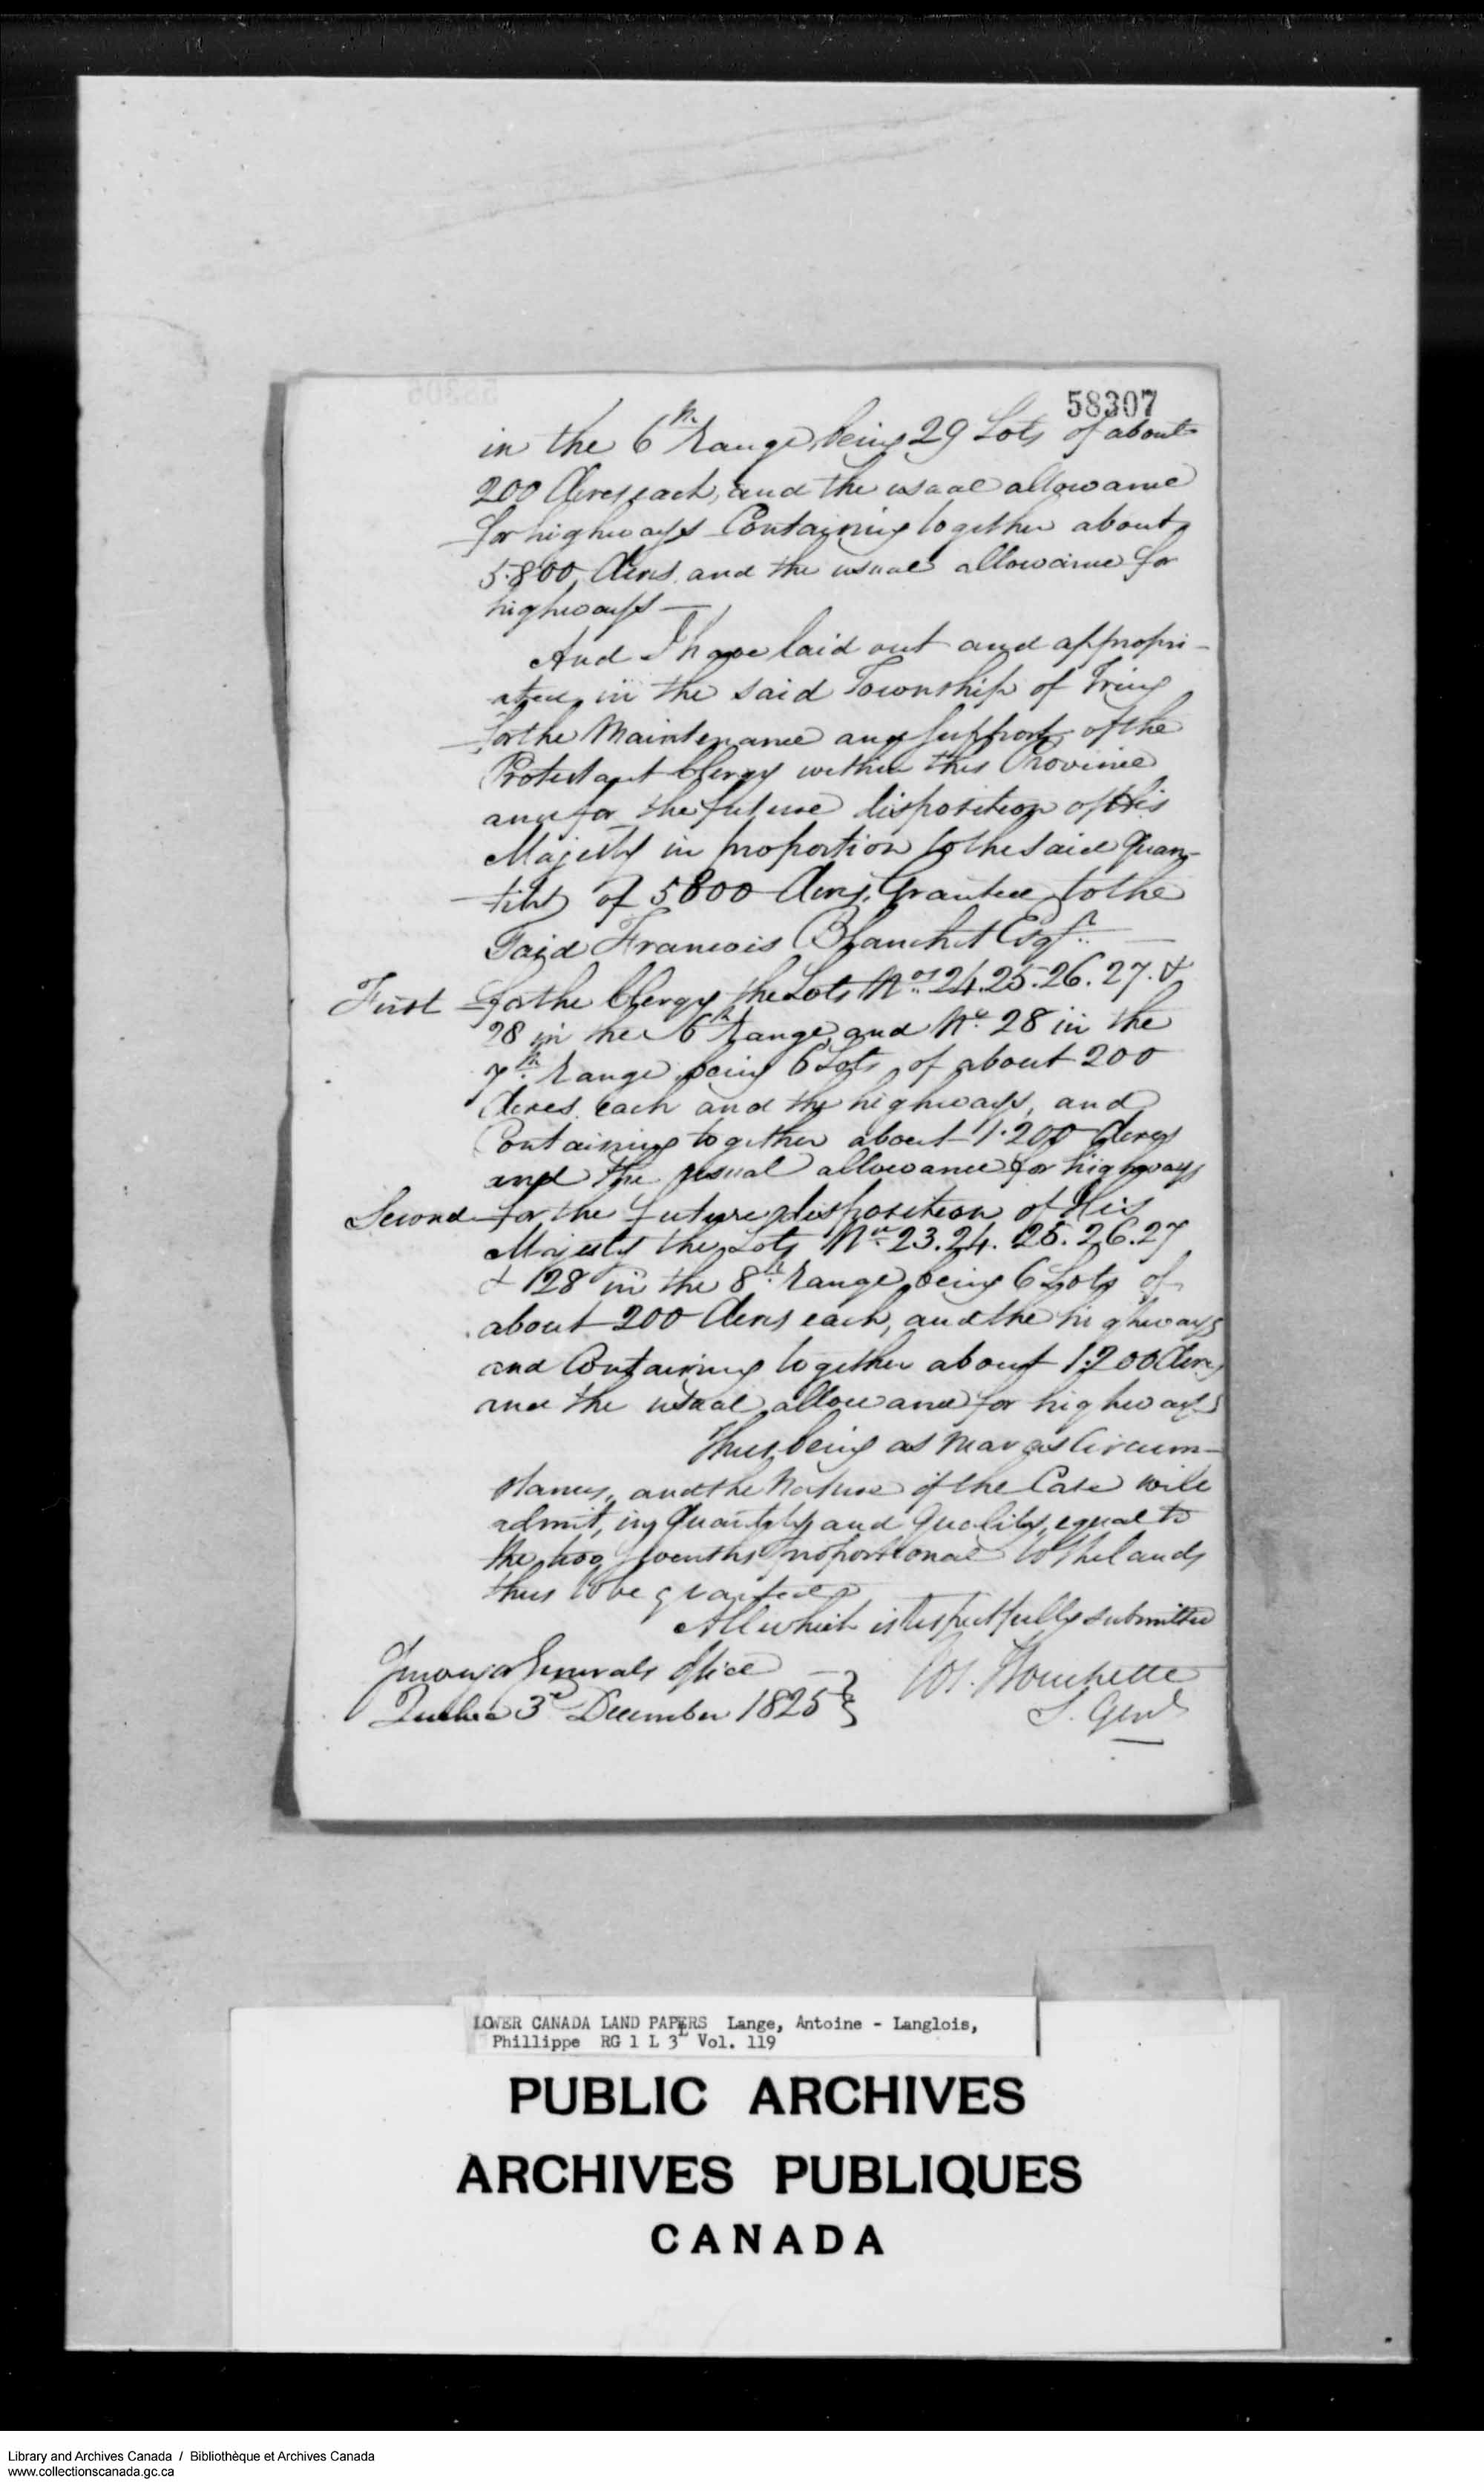 58307
in the 6th Range, being 29 Lots of about
200 Acres each, and the usual allowance
for highways Containing together about
5.800 Acres and the usual allowance for
highways —
And I have laid out and appropri-
ated, in the said Township of Tring
for the Maintenance and Support of the
Protestant Clergy within this Province
and for the future disposition of His
Majesty in proportion to the said Quan-
tity of 5800 Acres, Granted to the
Said Francois Blanchet Esqr. —
First For the Clergy the Lots Nos. 24.25.26.27. &
28 in the 6th Range, and No. 28 in the
7th Range being 6 Lots of about 200
Acres each and the highways, and
Containing together about 1.200 Acres
and the usual allowance for highways
Second for the future disposition of His
Majesty the Lots Nos. 23.24. 25. 26.27
& 28 in the 8th Range, being 6 Lots of
about 200 Acres each, and the highways
and Containing together about 1.200 Acres
and the usual allowance for highways
Thus being as near as Circum-
stances, and the Nature of the Case will
admit, in Quantity and Quality, equal to
the two sevenths proportional to the lands
thus to be granted
All which is respectfully submitted
Surveyor Generals Office
Quebec 3d December 1825
Jos. Bouchette
S. Genl
LOWER CANADA LAND PAPERS Lange, Antoine - Langlois,
Phillippe RG 1 L 3L Vol. 119
PUBLIC ARCHIVES
ARCHIVES PUBLIQUES
CANADA
Library and Archives Canada / Bibliothèque et Archives Canada
www.collectionscanada.gc.ca